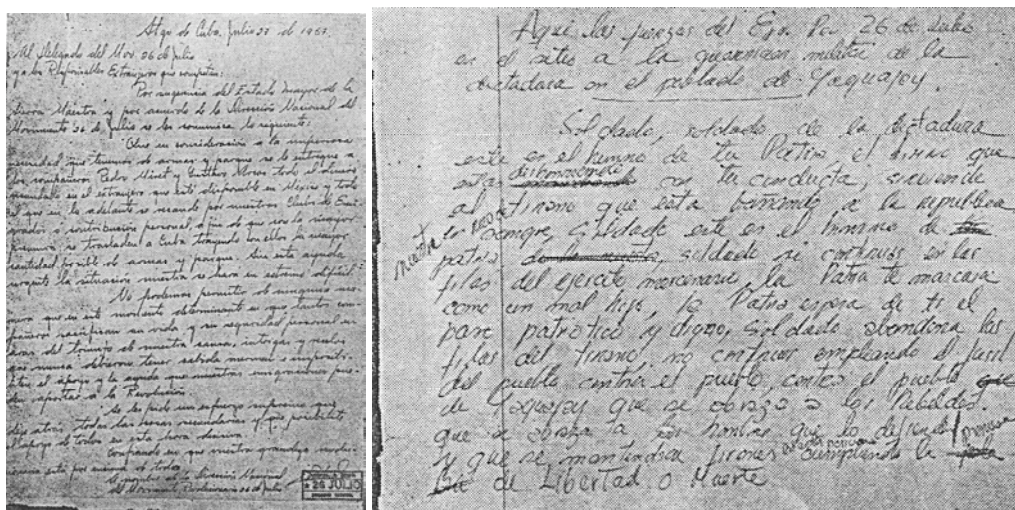 Stgo de Cuba, Julio 27 de 1957.
Al Delegado del Mov. 26 de Julio
y a los Responsables Extranjeros que competa:
Por sugerencia del Estado Mayor de la
Sierra Maestra y por acuerdo de la Dirección Nacional del
Movimiento 26 de Julio se les comunica lo siguiente:
Que en consideración a la imperiosa
necesidad que tenemos de armas y parque se le entregue a
los compañeros Pedro Miret y Gustavo Arcos todo el dinero
en el extranjero que está disponible en México y todo
el que en lo adelante se recaude por nuestros Clubs de
o contribución personal, a fin de que con la mayor
se trasladen a Cuba trayendo con ellos la mayor
cantidad posible de armas y parque. Sin esta ayuda
urgente la situación nuestra se hará en extremo difícil.
No podemos permitir de ninguna
que en este momento determinante en que tantos
sacrifican su vida y su seguridad personal en
del triunfo de nuestra causa, intrigas y celos
que nunca debieron tener cabida mermen o
el apoyo y la ayuda que nuestros emigrados
aportar a la Revolución.
Se les pide un esfuerzo supremo que
deje atrás todas las cosas secundarias y que posibilite
de todos en esta hora decisiva
Confiando en que nuestra grandeza
está por encima de todo
Dirección Nacional
del Movimiento Revolucionario 26 de Julio
26 JULIO
Aquí las fuerzas del Ejo. Reb. 26 de Julio
en el sitio a la guarnición militar de la
dictadura en el poblado de Yaguajay.
Soldado, soldado de la dictadura
este es el himno de tu Patria el himno que
estas deshonrando con tu conducta, sirviendo
al tirano que esta bañando a la republica
en sangre, soldado este es el himno de
nuestra patria, soldado si continuas en las
filas del ejercito mercenario, la Patria te marcara
como un mal hijo, la Patria espera de ti el
paso patriotico y digno, Soldado abandona las
filas del tirano, no continues empleando el fusil
del pueblo contra el pueblo, contra el pueblo
de Yaguajay que se abraza a los Rebeldes.
que se abraza a los hombres que lo defienden
y que se mantendran firmes cumpliendo la promesa
de Libertad o Muerte